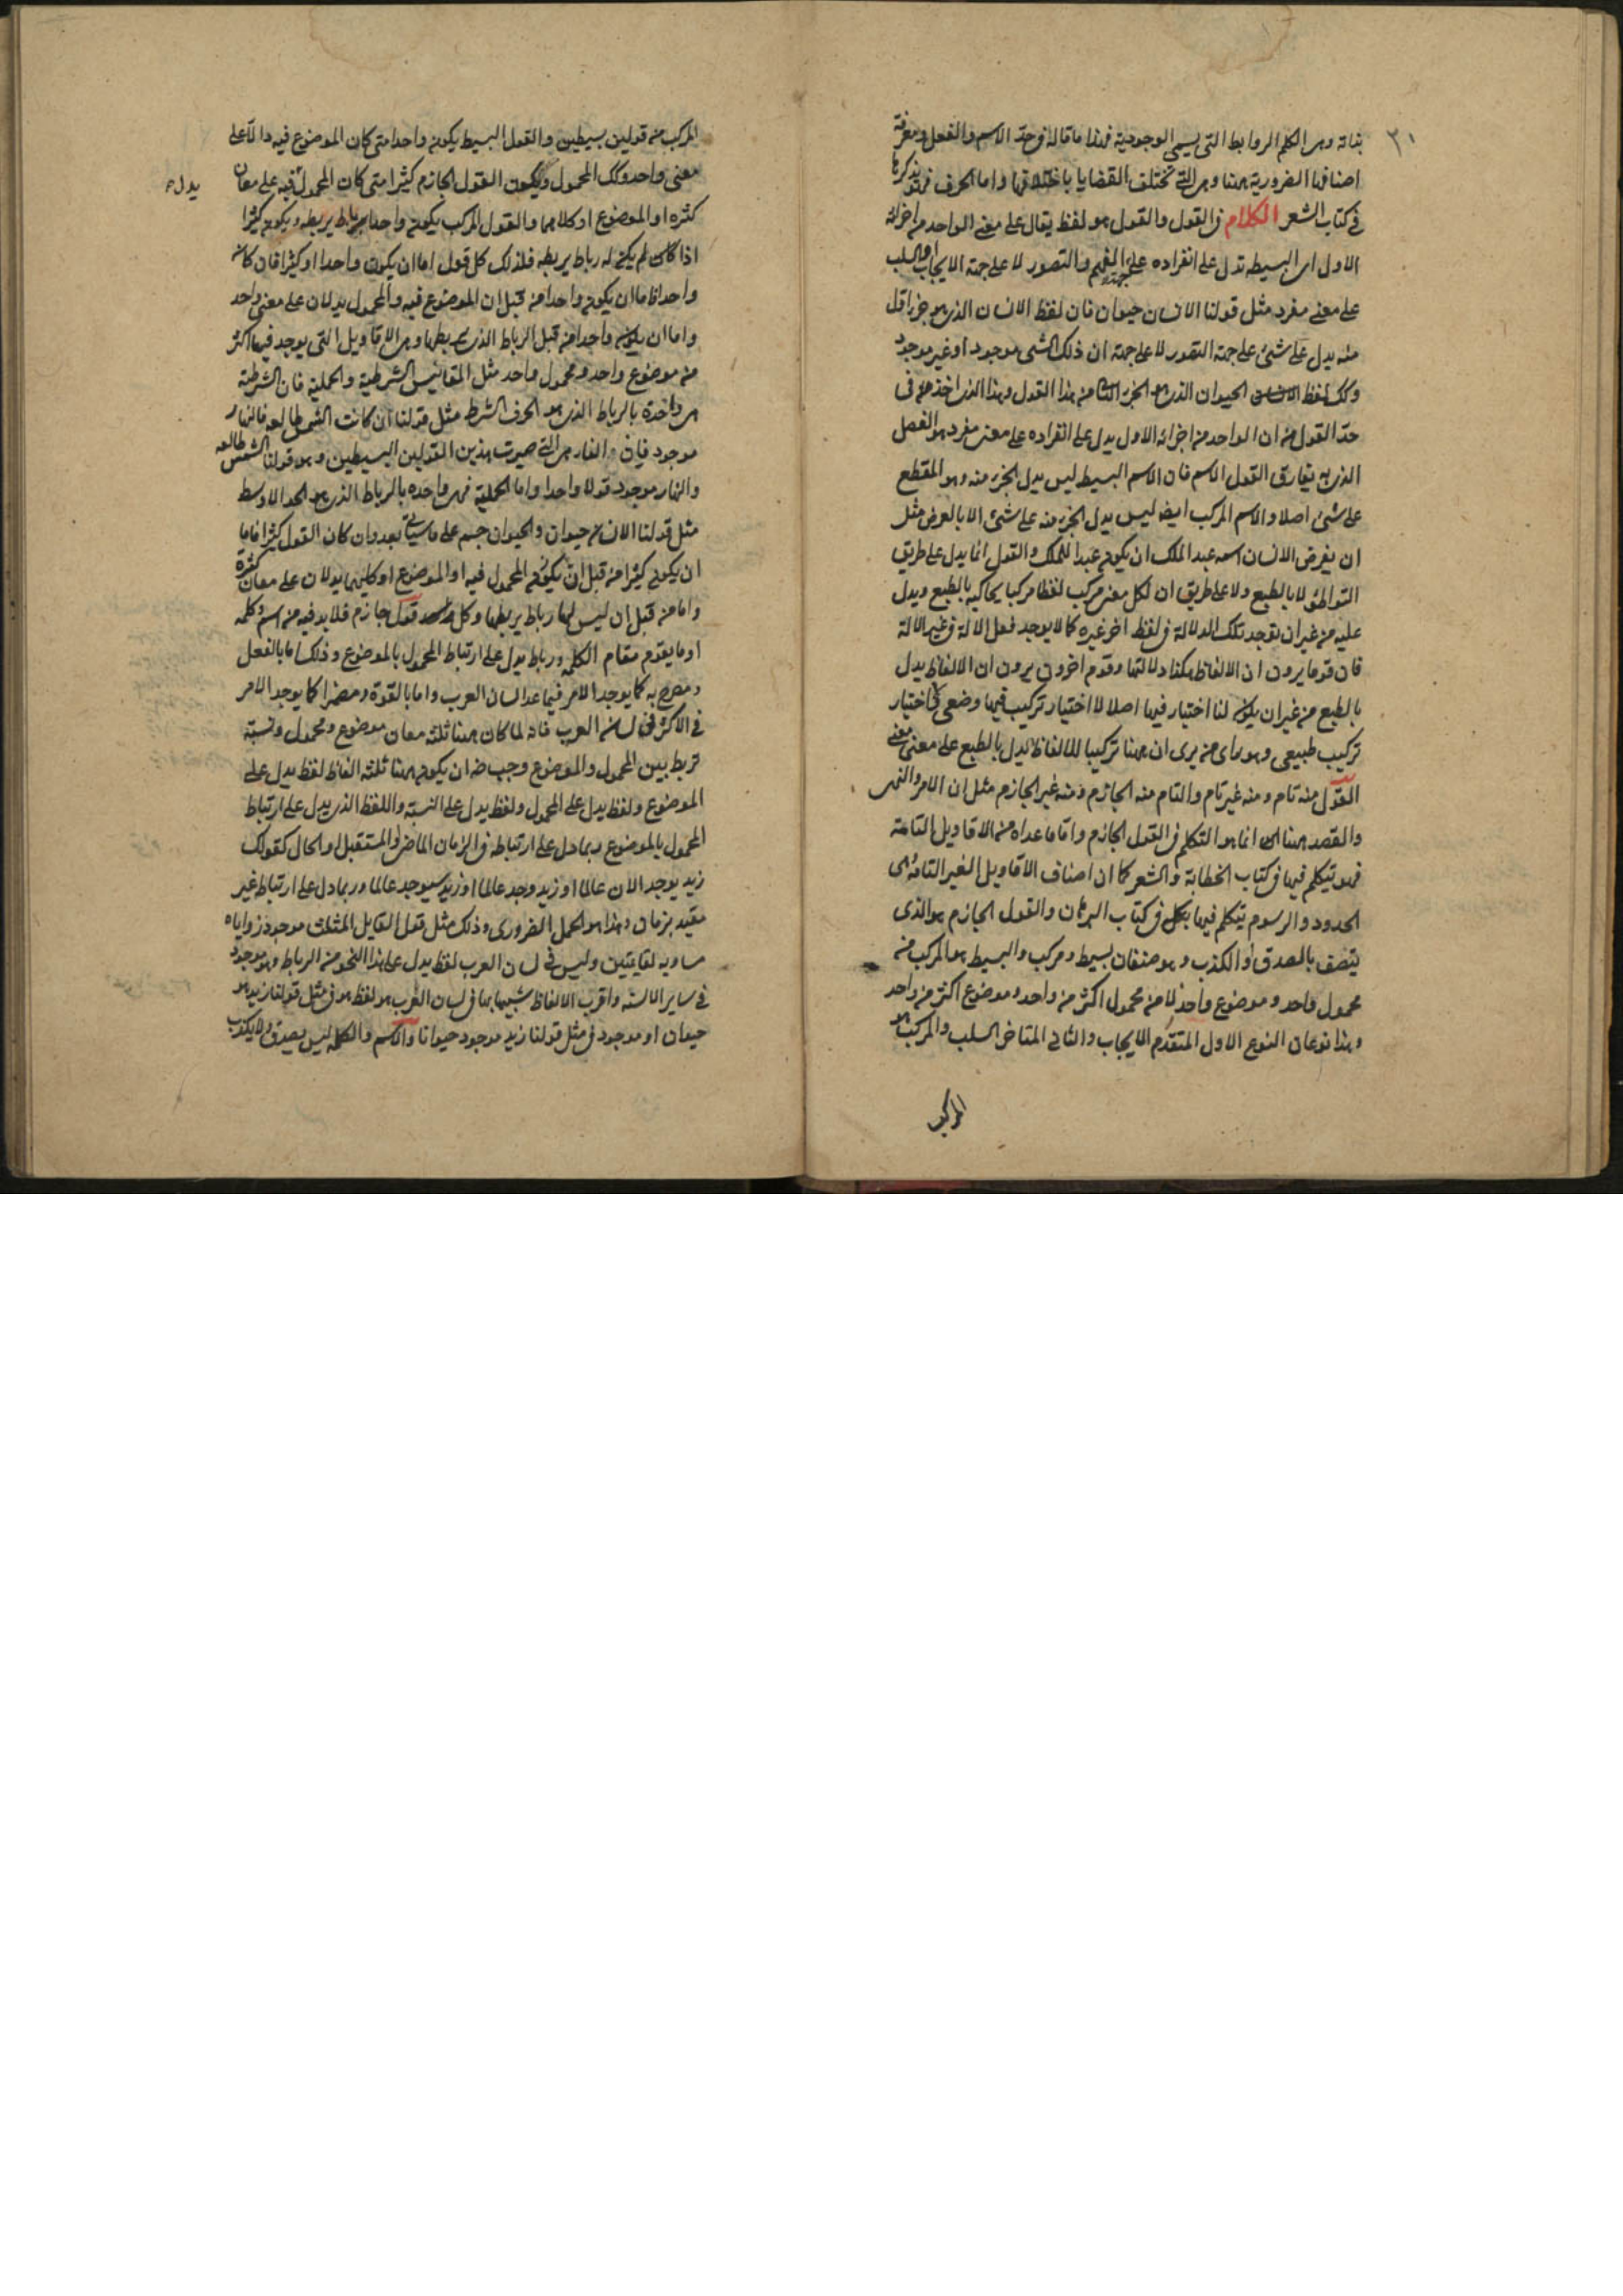 ٣١
بذاته وهى الكلم الروابط التى يسمى الوجودية فهذا ما قاله فى حد الاسم والفعل ومعرفة
اصنافها الضرورية ههنا وهى التى تختلف القضايا باختلافها واما الحرف فهو يذكرها
فى كتاب الشعر الكلام فى القول والقول هو لفظ يقال على معنى الواحد من اجزائه
الاول اى البسيطه تدل على انفراده على جهة الفهم والتصور لا على جهة الايجاب والسلب
على معنى مفرد مثل قولنا الانسان حيوان فان لفظ الانسان الذى هو جزء اقل
منه يدل على شئ على جهة التصور لا على جهة ان ذلك الشى موجود او غير موجود
وكك لفظ الحيوان الذى هو الجزء الثانى من هذا القول وهذا الذى اخذ من فى
حد القول من ان الواحد من اجزائه الاول يدل على انفراده على معنى مفرد هو الفصل
الذى به يفارق القول الاسم فان الاسم البسيط ليس يدل الجزء منه وهو المقطع
على شئ اصلا والاسم المركب ايضا ليس يدل الجزء منه على شئ الا بالعرض مثل
ان يفرض الانسان اسمه عبد الملك ان يكون عبدا للملك والقول انما يدل على طريق
التواطئ لا بالطبع ولا على طريق ان لكل معنى مركب لفظا مركبا يحاكيه بالطبع ويدل
عليه من غير ان توجد تلك الدلالة فى لفظ اخر غيره كما لا يوجد فعل الالة فى غير الالة
فان قوما يرون ان الالفاظ هكذا دلالتها وقوم اخرون يرون ان الالفاظ يدل
بالطبع من غير ان يكون لنا اختيار فيها اصلا لا اختيار تركيب فيها وضعى كاختيار
تركيب طبيعى وهو راى من يرى ان ههنا تركيبا للالفاظ يدل بالطبع على معنى معنى
القول منه تام ومنه غير تام والتام منه الجازم ومنه غير الجازم مثل ان الامر والنهى
والقصد ههنا انما هو التكلم فى القول الجازم واما ما عداه من الاقاويل التامة
فهو تيكلم فيها فى كتاب الخطابة والشعر كما ان اصناف الاقاويل الغير التامة هى
الحدود والرسوم تيكلم فيها بكل فى كتاب البرهان والقول الجازم هو الذى
يتصف بالصدق او الكذب وهو صنفان بسيط ومركب والبسيط هو المركب من
محمول واحد وموضوع واحد لا من محمول اكثر من واحد وموضوع اكثر من واحد
وهذا نوعان النوع الاول المتقدم الايجاب والثانى المتاخر السلب والمركب هو
المركب
المركب من قولين بسيطين والقول البسيط يكون واحدا متى كان الموضوع فيه دالا على
معنى واحد وكك المحمول ويكون القول الجازم كثيرا متى كان المحمول فيه على معان
يدل
كثره او الموضوع او كلاهما والقول المركب يكون واحدا برباط يربطه ويكون كثيرا
اذا كان لم يكن له رباط يربطه فلذلك كل قول اما ان يكون واحدا او كثيرا فان كان
واحدا فاما ان يكون واحدا من قبل ان الموضوع فيه والمحمول يدلان على معنى واحد
واما ان يكون واحدا من قبل الرباط الذى يربطها وهى الاقاويل التى يوجد فيها اكثر
من موضوع واحد ومحمول واحد مثل المقاييس الشرطية والحملية فان الشرطية
هى واحدة بالرباط الذى هو الحرف الشرط مثل قولنا ان كانت الشمس طالعه فالنهار
موجود فان الفاء هى التى صيرت هذين القولين البسيطين وهو قولنا الشمس طالعه
والنهار موجود قولا واحدا واما الحملية فهى واحده بالرباط الذى هو الحد الاوسط
مثل قولنا الانسان حيوان والحيوان جسم على ما سيأتى بعد وان كان القول كثيرا فاما
ان يكون كثيرا من قبل ان يكون المحمول فيه او الموضوع او كليهما يدلان على معان كثيرة
واما من قبل ان ليس لهما رباط يربطها وكل قول جازم فلا بد فيه من اسم وكلمه
او ما يقوم مقام الكلمه ورباط يدل على ارتباط المحمول بالموضوع وذلك اما بالفعل
ومصرح به كما يوجد الامر فيما عدا لسان العرب واما بالقوة ومضمرا كما يوجد الامر
فى الاكثر فى لسان العرب فانه لما كان ههنا ثلثه معان موضوع ومحمول ونسبة
تربط بين المحمول والموضوع وجب ضه ان يكون ههنا ثلثه الفاظ لفظ يدل على
الموضوع ولفظ يدل على المحمول ولفظ يدل على النسبة واللفظ الذى يدل على ارتباط
المحمول بالموضوع ربما دل على ارتباطه فى الزمان الماضى او المستقبل او الحال كقولك
زيد يوجد الان عالما او زيد وجد عالما او زيد سيوجد عالما وربما دل على ارتباط غير
مقيد بزمان وهذا هو الحمل الضرورى وذلك مثل قول القايل المثلث موجود زواياه
مساويه لقايمتين وليس فى لسان العرب لفظ يدل على هذا النحو من الرباط وهو موجود
فى ساير الالسنه واقرب الالفاظ شبيها بها فى لسان العرب هو لفظ هو فى مثل قولنا زيد هو
حيوان او موجود فى مثل قولنا زيد موجود حيوانا والاسم والكلمه ليس يصدق ولا يكذب